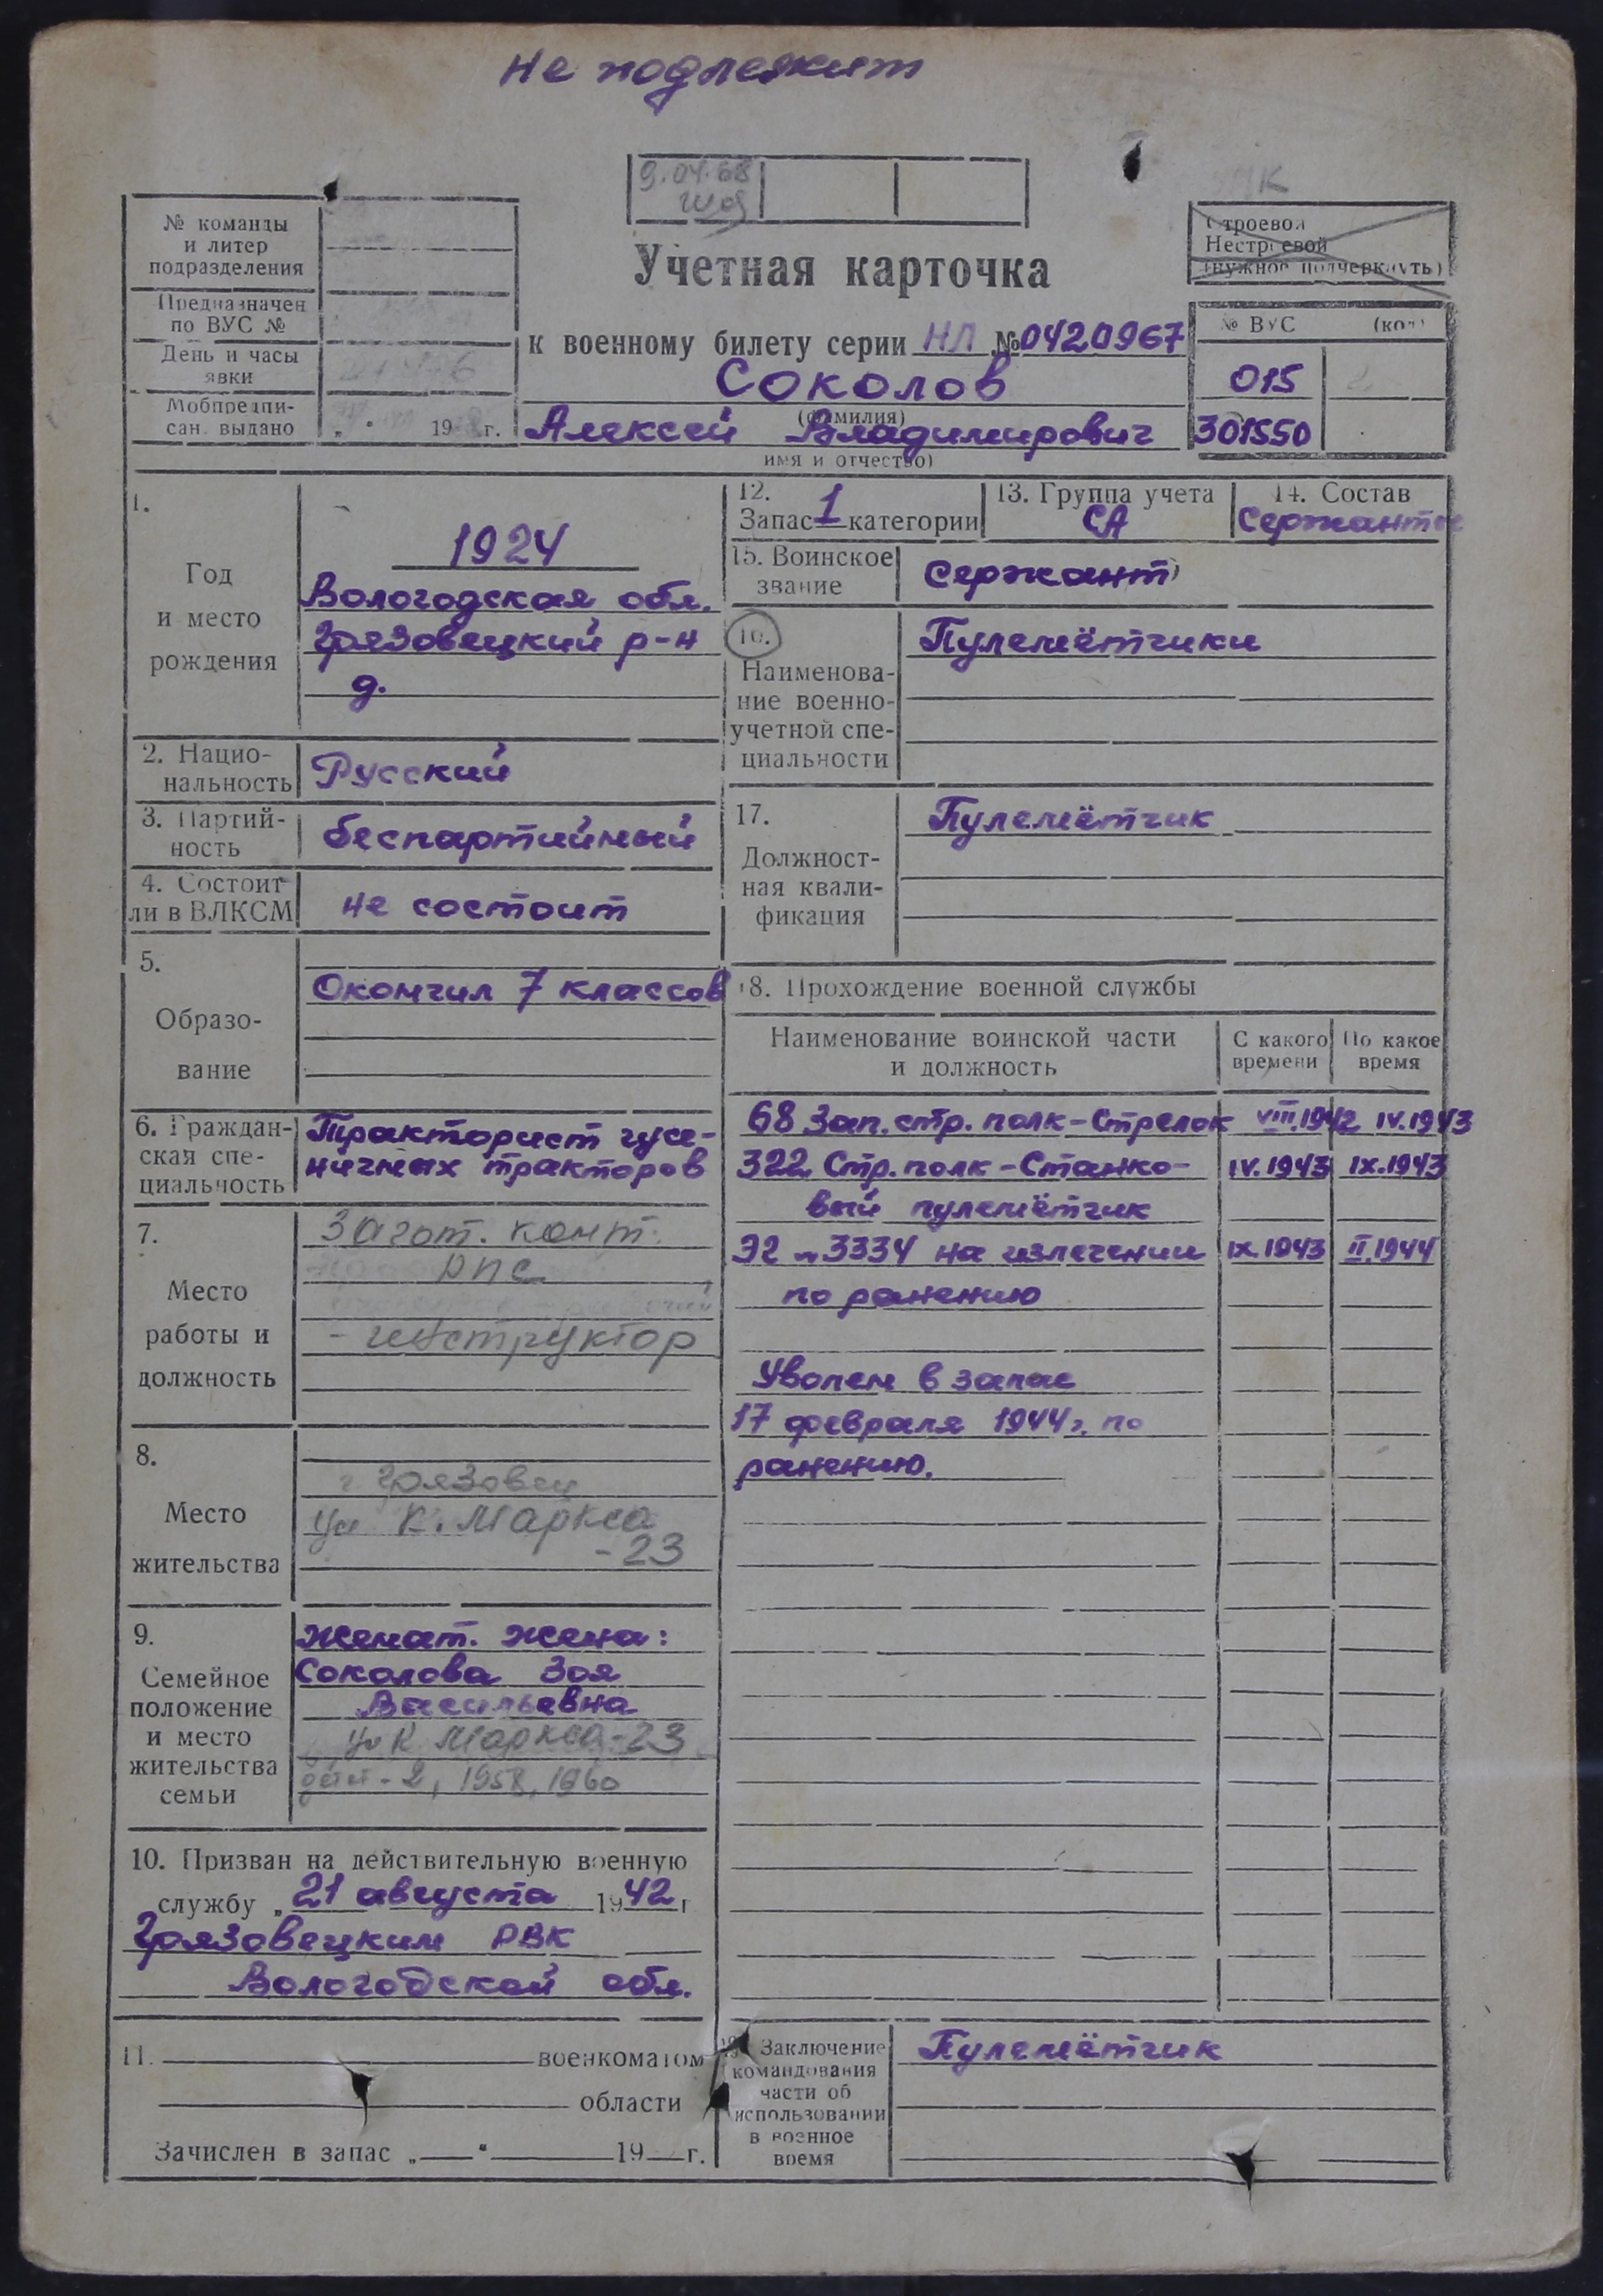 Не подлежит
9.04.68
№ команды
и литер
подразделения
Предназначен
по ВУС №
День и часы
явки
Мобпредпи-
сан. выдано „ “ 19 г.
Учетная карточка
к военному билету серии НЛ № 0420967
Соколов
(фамилия)
Алексей Владимирович
имя и отчество)
Строевой
Нестроевой
(нужное подчеркнуть)
№ ВУС (код)
015 2
301550
1.
Год
и место
рождения
1924
Вологодская обл.
Грязовецкий р-н
д.
2. Нацио-
нальность
Русский
3. Партий-
ность
беспартийный
4. Состоит
ли в ВЛКСМ
не состоит
5.
Образо-
вание
Окончил 7 классов
6. Граждан-
ская спе-
циальность
Тракторист гусе-
ничных тракторов
7.
Место
работы и
должность
Загот. конт.
РПС
- инструктор
8.
Место
жительства
г Грязовец
ул К. Маркса
-23
9.
Семейное
положение
и место
жительства
семьи
Женат. Жена:
Соколова Зоя
Васильевна
ул К Маркса-23
дети - 2, 1958, 1960
10. Призван на действительную военную
службу „ 21 августа 1942 г
Грязовецким РВК
Вологодской обл.
11. военкоматом
области
Зачислен в запас „ “ 19 г.
12.
Запас 1 категории
13. Группа учета
СА
14. Состав
Сержантов
15. Воинское
звание
Сержант
16.
Наименова-
ние военно-
учетной спе-
циальности
Пулемётчики
17.
Должност-
ная квали-
фикация
Пулемётчик
18. Прохождение военной службы
Наименование воинской части
и должность
С какого
времени
По какое
время
68 Зап. стр. полк - Стрелок VIII.1942 IV.1943
322 Стр. полк - Станко- IV.1943 IX.1943
вый пулемётчик
ЭГ н 3334 на излечении IX.1943 II.1944
по ранению
Уволен в запас
17 февраля 1944 г. по
ранению.
19. Заключение
командования
части об
использовании
в военное
время
Пулемётчик